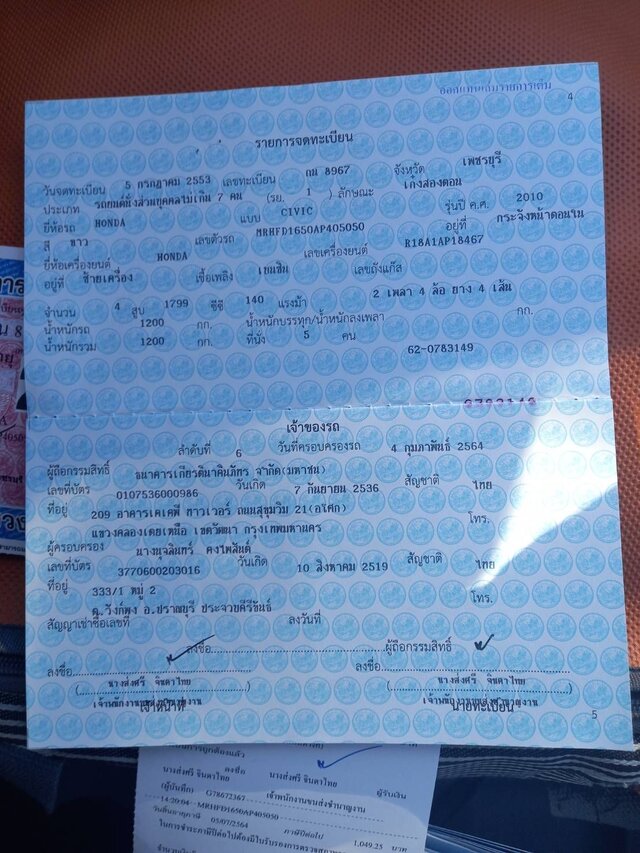 ออกแทนเล่มรายการเดิม
4
รายการจดทะเบียน
วันจดทะเบียน 5 กรกฎาคม 2553 เลขทะเบียน กน 8967 จังหวัด เพชรบุรี
ประเภท รถยนต์นั่งส่วนบุคคลไม่เกิน 7 คน (รย. 1 ) ลักษณะ เก๋งสองตอน
ยี่ห้อรถ HONDA แบบ CIVIC รุ่นปี ค.ศ. 2010
สี ขาว เลขตัวรถ MRHFD1650AP405050 อยู่ที่ กระจังหน้าตอนใน
ยี่ห้อเครื่องยนต์ HONDA เลขเครื่องยนต์ R18A1AP18467
อยู่ที่ ซ้ายเครื่อง เชื้อเพลิง เบนซิน เลขถังแก๊ส
จำนวน 4 สูบ 1799 ซีซี 140 แรงม้า 2 เพลา 4 ล้อ ยาง 4 เส้น
น้ำหนักรถ 1200 กก. น้ำหนักบรรทุก/น้ำหนักลงเพลา กก.
น้ำหนักรวม 1200 กก. ที่นั่ง 5 คน
62-0783149
เจ้าของรถ
ลำดับที่ 6 วันที่ครอบครองรถ 4 กุมภาพันธ์ 2564
ผู้ถือกรรมสิทธิ์ ธนาคารเกียรตินาคินภัทร จำกัด(มหาชน)
เลขที่บัตร 0107536000986 วันเกิด 7 กันยายน 2536 สัญชาติ ไทย
ที่อยู่ 209 อาคารเคเคพี ทาวเวอร์ ถนนสุขุมวิม 21(อโศก)
แขวงคลองเตยเหนือ เขตวัฒนา กรุงเทพมหานคร โทร.
ผู้ครอบครอง นางนุจลินทร์ คงไพสันต์
เลขที่บัตร 3770600203016 วันเกิด 10 สิงหาคม 2519 สัญชาติ ไทย
ที่อยู่ 333/1 หมู่ 2
ต.วังก์พง อ.ปราณบุรี ประจวบคีรีขันธ์ โทร.
สัญญาเช่าซื้อเลขที่ ลงวันที่
ลงชื่อ ผู้ถือกรรมสิทธิ์
ลงชื่อ ลงชื่อ
นางส่งศรี จินดาไทย นางส่งศรี จินดาไทย
เจ้าพนักงานขนส่งชำนาญงาน เจ้าพนักงานขนส่งชำนาญงาน
เจ้าหน้าที่ นายทะเบียน
5
ลงชื่อ ผู้รับเงิน
นางส่งศรี จินดาไทย นางส่งศรี จินดาไทย
(ผู้บันทึก) G78672367 เจ้าพนักงานขนส่งชำนาญงาน
14:20:04 MRHFD1650AP405050
วันสิ้นอายุภาษี 05/07/2564 ภาษีปีต่อไป 1,049.25 บาท